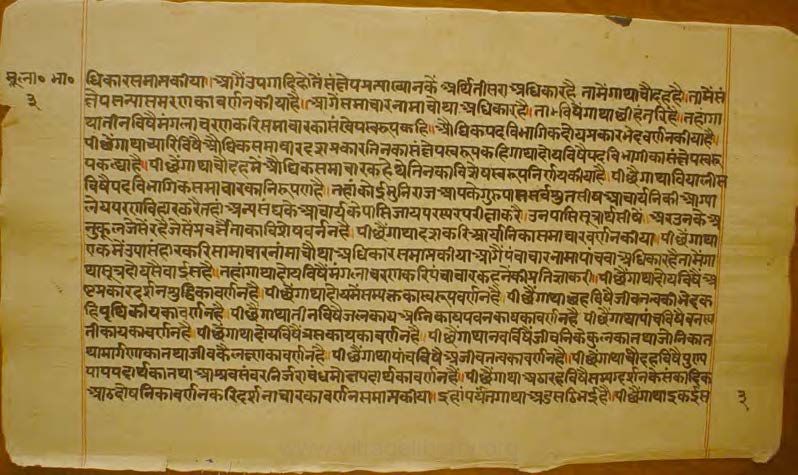 मूला० भा० धिकार समाप्त कीया॥ आगैं उपगादि दोनें संक्षेप प्रत्याख्यानकें अर्थि तीसरा अधिकार है नामें गाथा चौदह है॥ तामें सं
३ क्षेप सन्यास मरण का वर्णन कीया है॥ आगें समाचार नामा चौथा अधिकार है॥ ता विषै गाथा छीहंतरि है॥ तहां गा
था तीन विषै मंगलाचरण करि समाचार का संखेप स्वरूप कहि॥ औधिक पद विभागिक दोय प्रकार भेद वर्णन कीया है॥
पीछैं गाथा च्यारि विषै औधिक समाचार दश प्रकार तिनका संक्षेप स्वरूप कहि गाथा दोय विषै पद विभागी का संक्षेप स्वरू
प कह्या है॥ पीछैं गाथा चौदह मे औधिक समाचार कहे थे तिनका विशेष स्वरूप निर्णय कीया है॥ पीछैं गाथा वियालीस
विषै पद विभागिक समाचार का निरूपण है॥ तहां कोई मुनिराज आपके गुरु पास सर्व श्रुत सीष आचार्यनिकी आग्या
लेय पर गण विहार करै तहां अन्य संघ के आचार्य के पासि जाय परस्पर परीक्षा करे॥ उन पासि सूत्रार्थ सीषें॥ अर उनके अ
नुकूल जेसें रहे जेसें प्रवर्त्तें ताका विशेष वर्नन है॥ पीछैं गाथा दश करि आर्यानिका समाचार वर्णन कीया॥ पीछैं गाथा
एक में उपसंहार करि समाचार नामा चौथा अधिकार समाप्त कीया॥ आगैं पंचाचार नामा पांचवा अधिकार है नामें गा
था सूत्र दोय सै वाईस है॥ तहां गाथा दोय विषैं मंगलाचरण करि पंचाचार कहने की प्रतिज्ञा करी॥ पीछैं गाथा दोय विषैं अ
ष्ट प्रकार दर्शन शुद्धि का वर्णन है॥ पीछैं गाथा दोय में सम्यक्त का स्वरूप वर्णन है॥ पीछैं गाथा छह विषैं जीव तत्व की भेद क
हि पृथिवी काय का वर्णन है॥ पीछैं गाथा तीन विषैं जलकाय अग्निकाय पवनकाय का वर्णन है पीछैं गाथा पांच विषै वनस्प
ती काय का वर्णन है॥ पीछैं गाथा दोय विषैं त्रसकाय का वर्णन है॥ पीछैं गाथा नव विषैं जीवनिके कुल का तथा जोनि का त
था मार्गणा का तथा जीव कै लक्षण का वर्णन है॥ पीछैं गाथा पांच विषैं अजीव तत्व का वर्णन है॥ पीछैं गाथा चौदह विषैं पुण्य
पाप पदार्थ का तथा आश्रव संवर निर्जरा बंध मोक्ष पदार्थ का वर्णन है॥ पीछैं गाथा अठारह विषैं सम्यग्दर्शन के संकादिक
आठ दोषनिका वर्णन करि दर्शनाचार का वर्णन समाप्त कीया॥ इहां पर्यंत गाथा अडसठि भई है॥ पीछैं गाथा इकईस ३